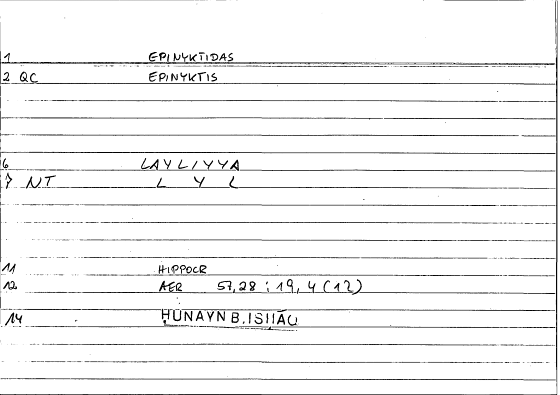 1 EPINYKTIDAS
2 QC EPINYKTIS
6 LAYLIYYA
7 NT L Y L
11 HIPPOCR
12 AER 57,28 : 19, 4 (12)
14 ḤUNAYN B. ISḤĀQ